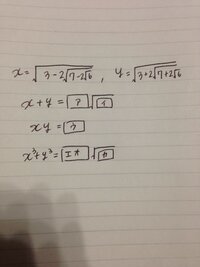 x=√(3-2√(7-2√6)), y=√(3+2√(7+2√6))
x+y=ア√イ
xy=ウ
x³+y³=エオ√カ